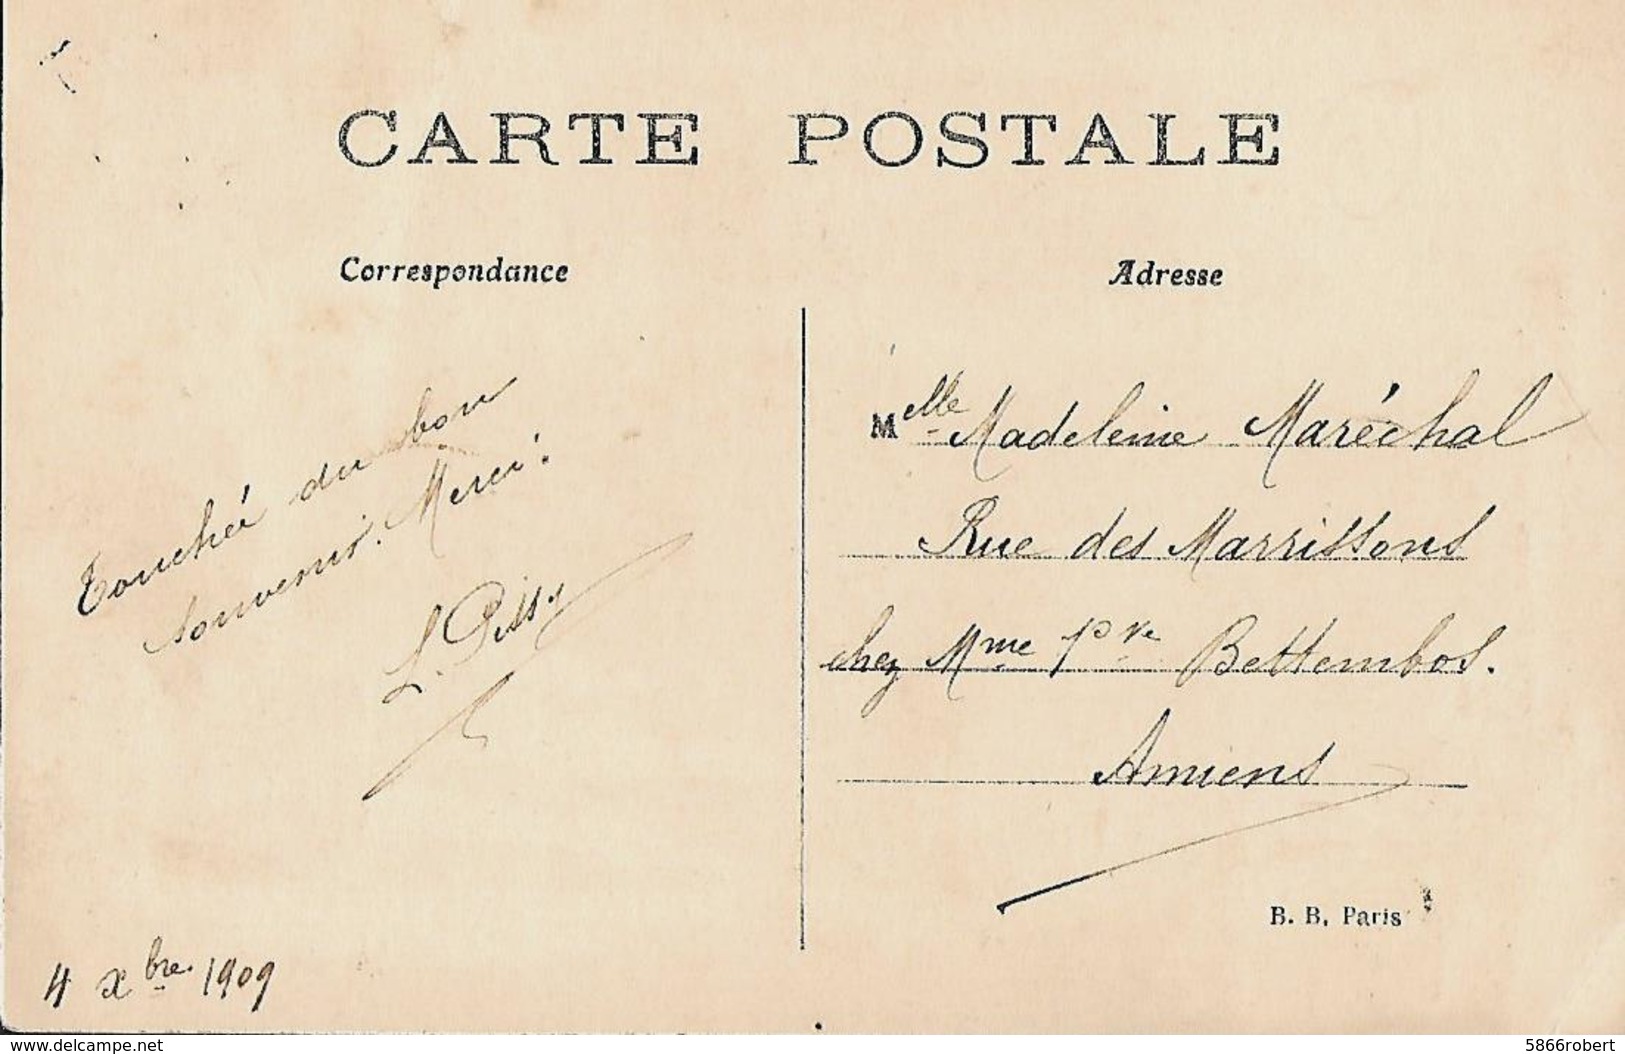 CARTE POSTALE
Correspondance
Touchée du bon
souvenir. Merci.
L.
4 Xbre 1909
Adresse
Melle Madeleine Maréchal
Rue des Marrissons
chez Mme Vve Bettembos.
Amiens
B. B. Paris
www.delcampe.net
5866robert